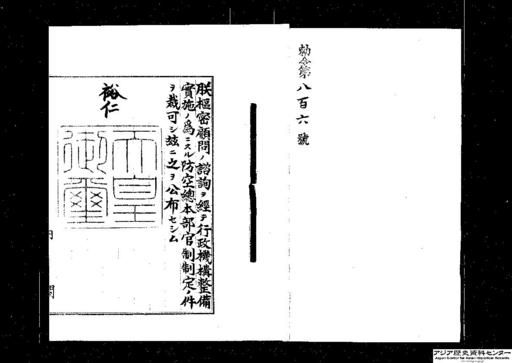 勅令第八百六號
朕樞密顧問ノ諮詢ヲ經テ行政機構整備
實施ノ爲ニスル防空總本部官制制定ノ件
ヲ裁可シ玆ニ之ヲ公布セシム
裕仁
天皇
御璽
アジア歴史資料センター
Japan Center for Asian Historical Records